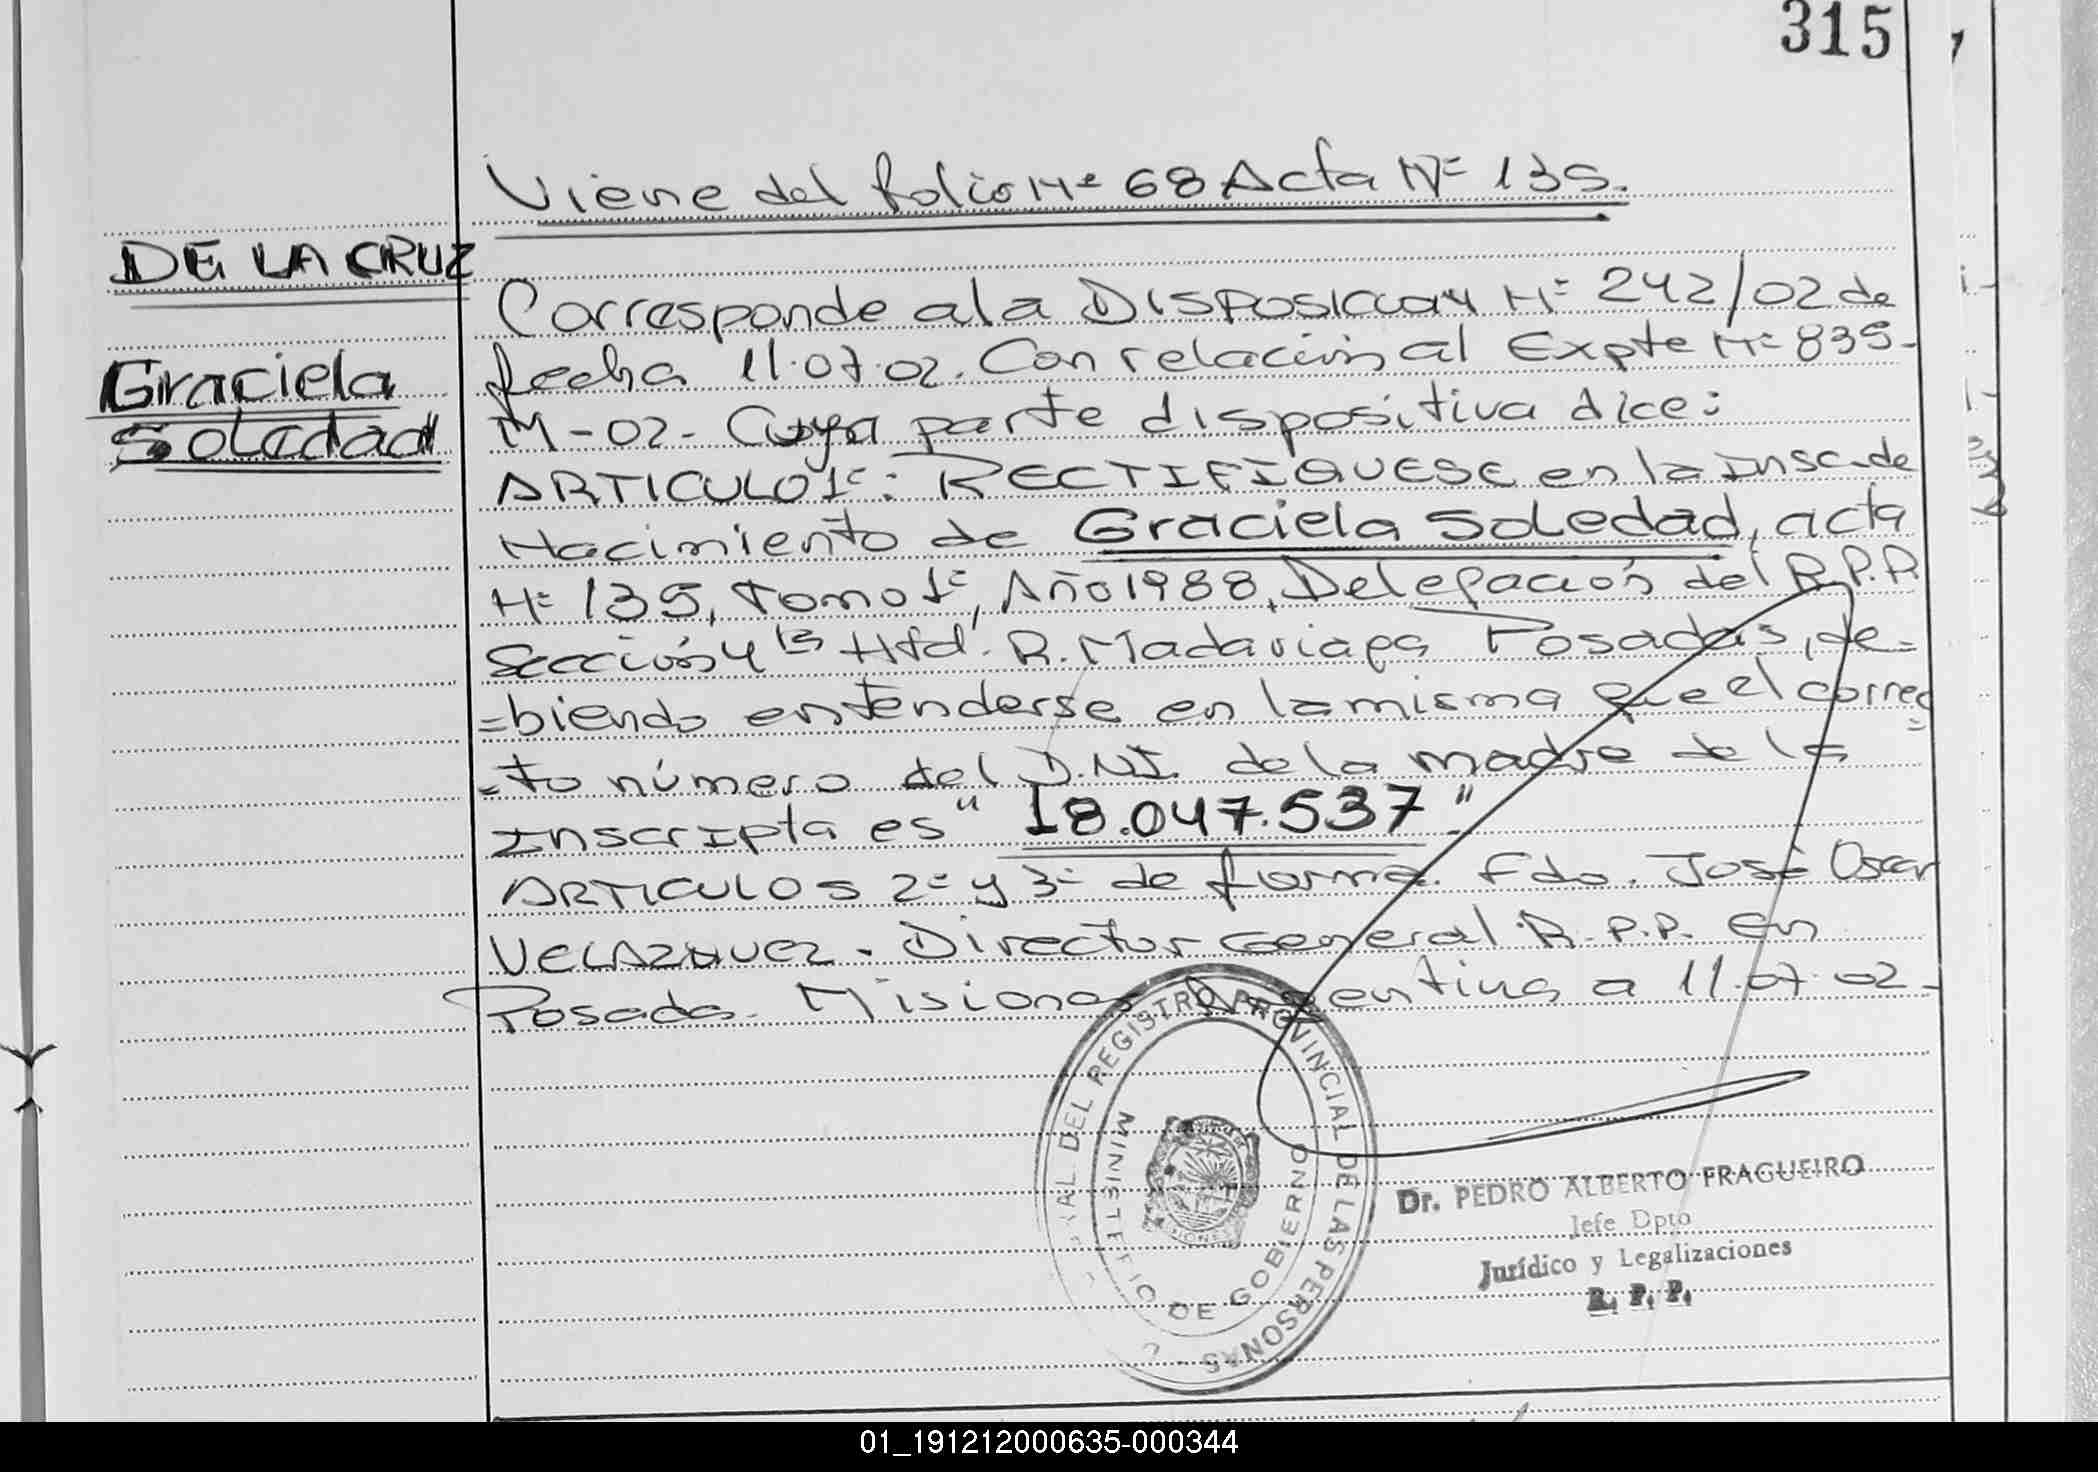 315
Viene del folio Nº 68 Acta Nº 135.
DE LA CRUZ
Graciela
Soledad
Corresponde a la DISPOSICION Nº 242/02 de
fecha 11.07.02. Con relación al Expte Nº 835-
M-02- Cuya parte dispositiva dice:
ARTICULO 1º: RECTIFIQUESE en la Insc. de
Nacimiento de Graciela Soledad, acta
Nº 135, Tomo 1º, Año 1988, Delegación del R.P.P.
Sección 4ta Htal. R. Madariaga Posadas, de=
=biendo entenderse en la misma que el correc=
=to número del D.N.I. de la madre de la
Inscripta es " 18.047.537 "
ARTICULOS 2º y 3º de forma. Fdo. José Oscar
VELAZQUEZ. Director General R.P.P. En
Posadas. Misiones Argentina a 11.07.02-
RAL DEL REGISTRO PROVINCIAL DE LAS PERSONAS
MINISTERIO DE GOBIERNO
Dr. PEDRO ALBERTO FRAGUEIRO
Jefe Dpto
Jurídico y Legalizaciones
R. P. P.
01_191212000635-000344